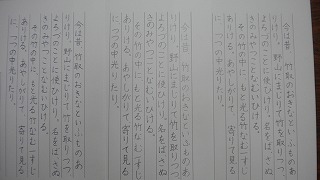 今は昔、竹取のおきなといふものあ
りけり。野山にまじりて竹を取りつつ、
よろづのことに使ひけり。名をばさぬ
きのみやつことなむいひける。
その竹の中に、もと光る竹なむ一すじ
ありける。あやしがりて、寄りて見る
に、つつの中光りたり。
今は昔、竹取のおきなといふものあ
りけり。野山にまじりて竹を取りつつ、
よろづのことに使ひけり。名をばさぬ
きのみやつことなむいひける。
その竹の中に、もと光る竹なむ一すじ
ありける。あやしがりて、寄りて見る
に、つつの中光りたり。
今は昔、竹取のおきなといふものあ
りけり。野山にまじりて竹を取りつつ、
よろづのことに使ひけり。名をばさぬ
きのみやつことなむいひける。
その竹の中に、もと光る竹なむ一すじ
ありける。あやしがりて、寄りて見る
に、つつの中光りたり。